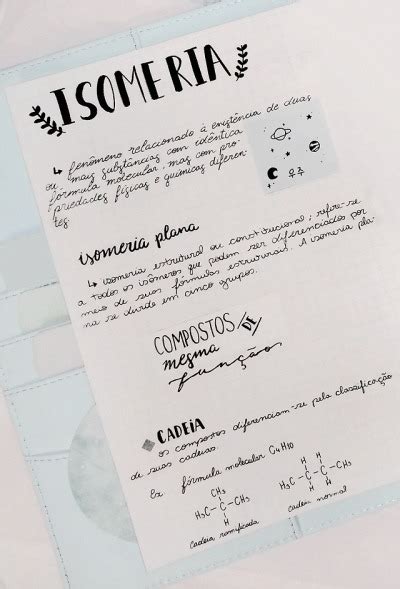 ISOMERIA
↳ fenômeno relacionado à existência de duas
ou mais substâncias com idêntica
fórmula molecular, mas com pro-
priedades físicas e químicas diferen-
tes.
우주
isomeria plana
↳ isomeria estrutural ou constitucional; refere-se
a todos os isômeros que podem ser diferenciados por
meio de suas fórmulas estruturais. A isomeria pla-
na se divide em cinco grupos.
COMPOSTOS DE
mesma
função
CADEIA
os compostos diferenciam-se pela classificação
de suas cadeias.
Ex fórmula molecular C4H10
CH3
H3C-C-CH3
H
cadeia ramificada
H H
H3C-C-C-CH3
H H
cadeia normal